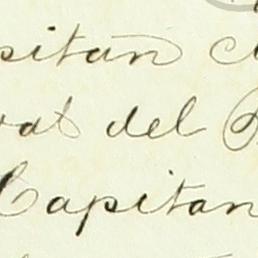 pitan
val del
Capitan